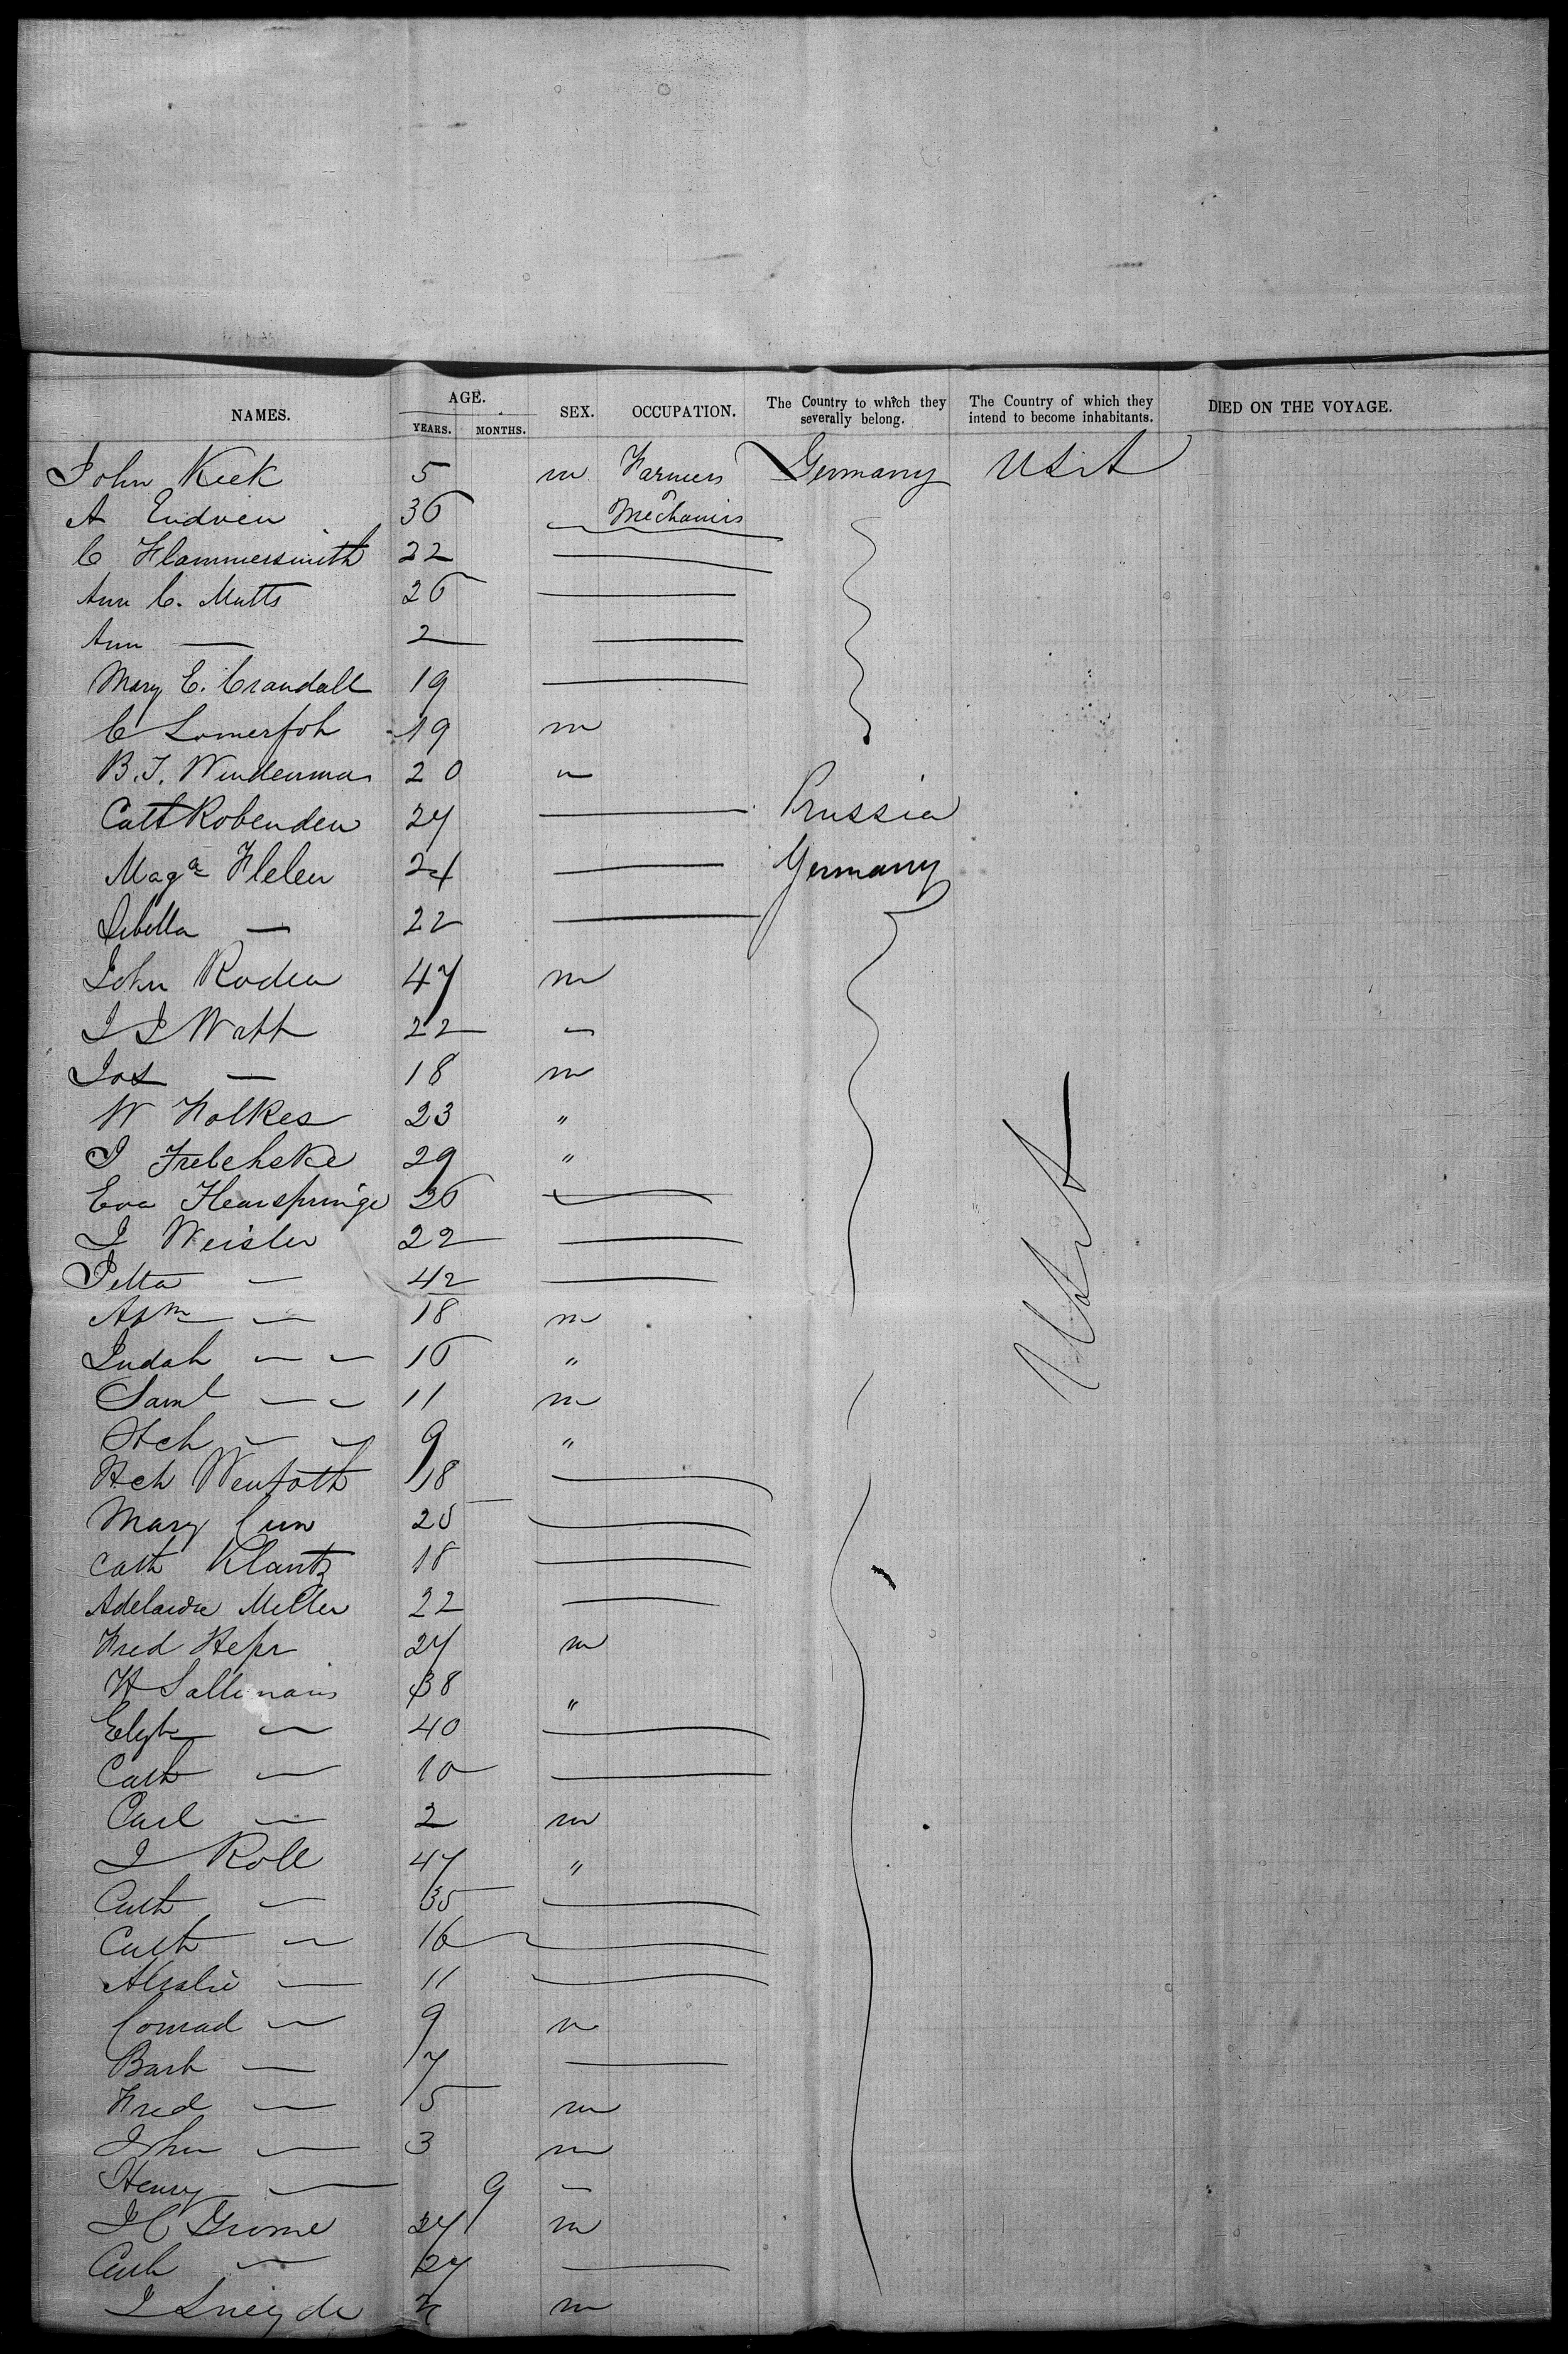 NAMES. AGE. YEARS. MONTHS. SEX. OCCUPATION. The Country to which they severally belong. The Country of which they intend to become inhabitants. DIED ON THE VOYAGE.
John Keek 5 m Farmers Germany USA
A 36 Mechanics
C Flammersmith 22
Ann C. Matts 26
Ann — 2
Mary E. Crandall 19
C Somerfoh 19 m
B. J. Windenman 20
Cath Robenden 27 Prussia
Maga Flelen 24 Germany
Sibella — 22
John Roden 47 m
J J Watt 22
Jos — 18 m
W Folkes 23 "
J Frelchske 29 "
Eva Hearspringe 26
J Weisler 22
Petta — 42
— 18 m USA
Judah — — 16 "
Saml — — 11 m
Hch — — 9 "
Hch Wenfoth 18
Mary Cun 25
Cath Klantz 18
Adelaide Meller 22
Fred Hepr 27 m
H Sallimans 38 "
— 40
Cath — 10
Carl — 2 m
J Roll 47 "
Cath — 35
Cath — 16
— 11
Conrad — 9 m
Barb — 7
Fred — 5 m
John — 3 m
Henry — 9
J C Grome 27 m
Cath — 27
J Sneyde m